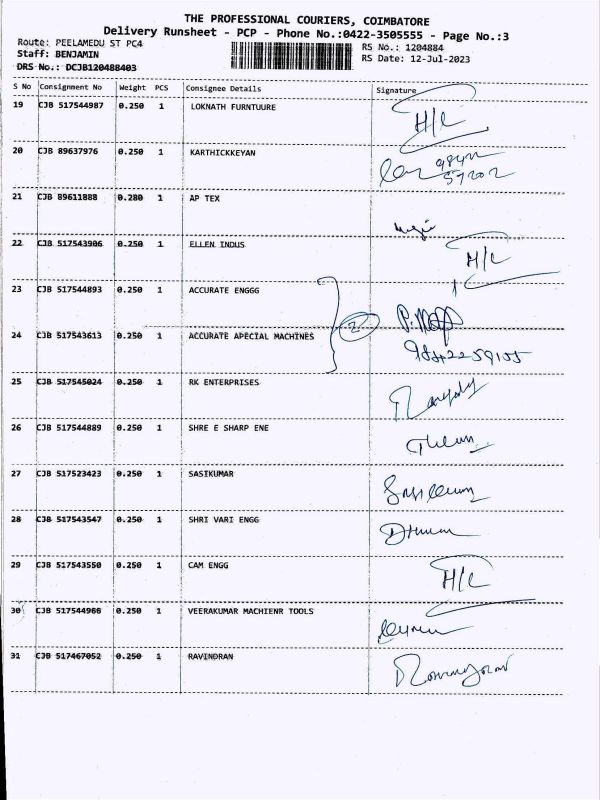 THE PROFESSIONAL COURIERS, COIMBATORE
Delivery Runsheet - PCP - Phone No.:0422-3505555 - Page No.:3
Route: PEELAMEDU ST PC4
RS No.: 1204884
Staff: BENJAMIN
RS Date: 12-Jul-2023
DRS No.: DCJB120488403
S No Consignment No Weight PCS Consignee Details Signature
19 CJB 517544987 0.250 1 LOKNATH FURNTUURE H/L
20 CJB 89637976 0.250 1 KARTHICKKEYAN
21 CJB 89611888 0.280 1 AP TEX
22 CJB 517543906 0.250 1 ELLEN INDUS H/L
23 CJB 517544893 0.250 1 ACCURATE ENGGG
2
24 CJB 517543613 0.250 1 ACCURATE APECIAL MACHINES
25 CJB 517545024 0.250 1 RK ENTERPRISES
26 CJB 517544889 0.250 1 SHRE E SHARP ENE
27 CJB 517523423 0.250 1 SASIKUMAR
28 CJB 517543547 0.250 1 SHRI VARI ENGG
29 CJB 517543550 0.250 1 CAM ENGG H/L
30 CJB 517544966 0.250 1 VEERAKUMAR MACHIENR TOOLS
31 CJB 517467052 0.250 1 RAVINDRAN